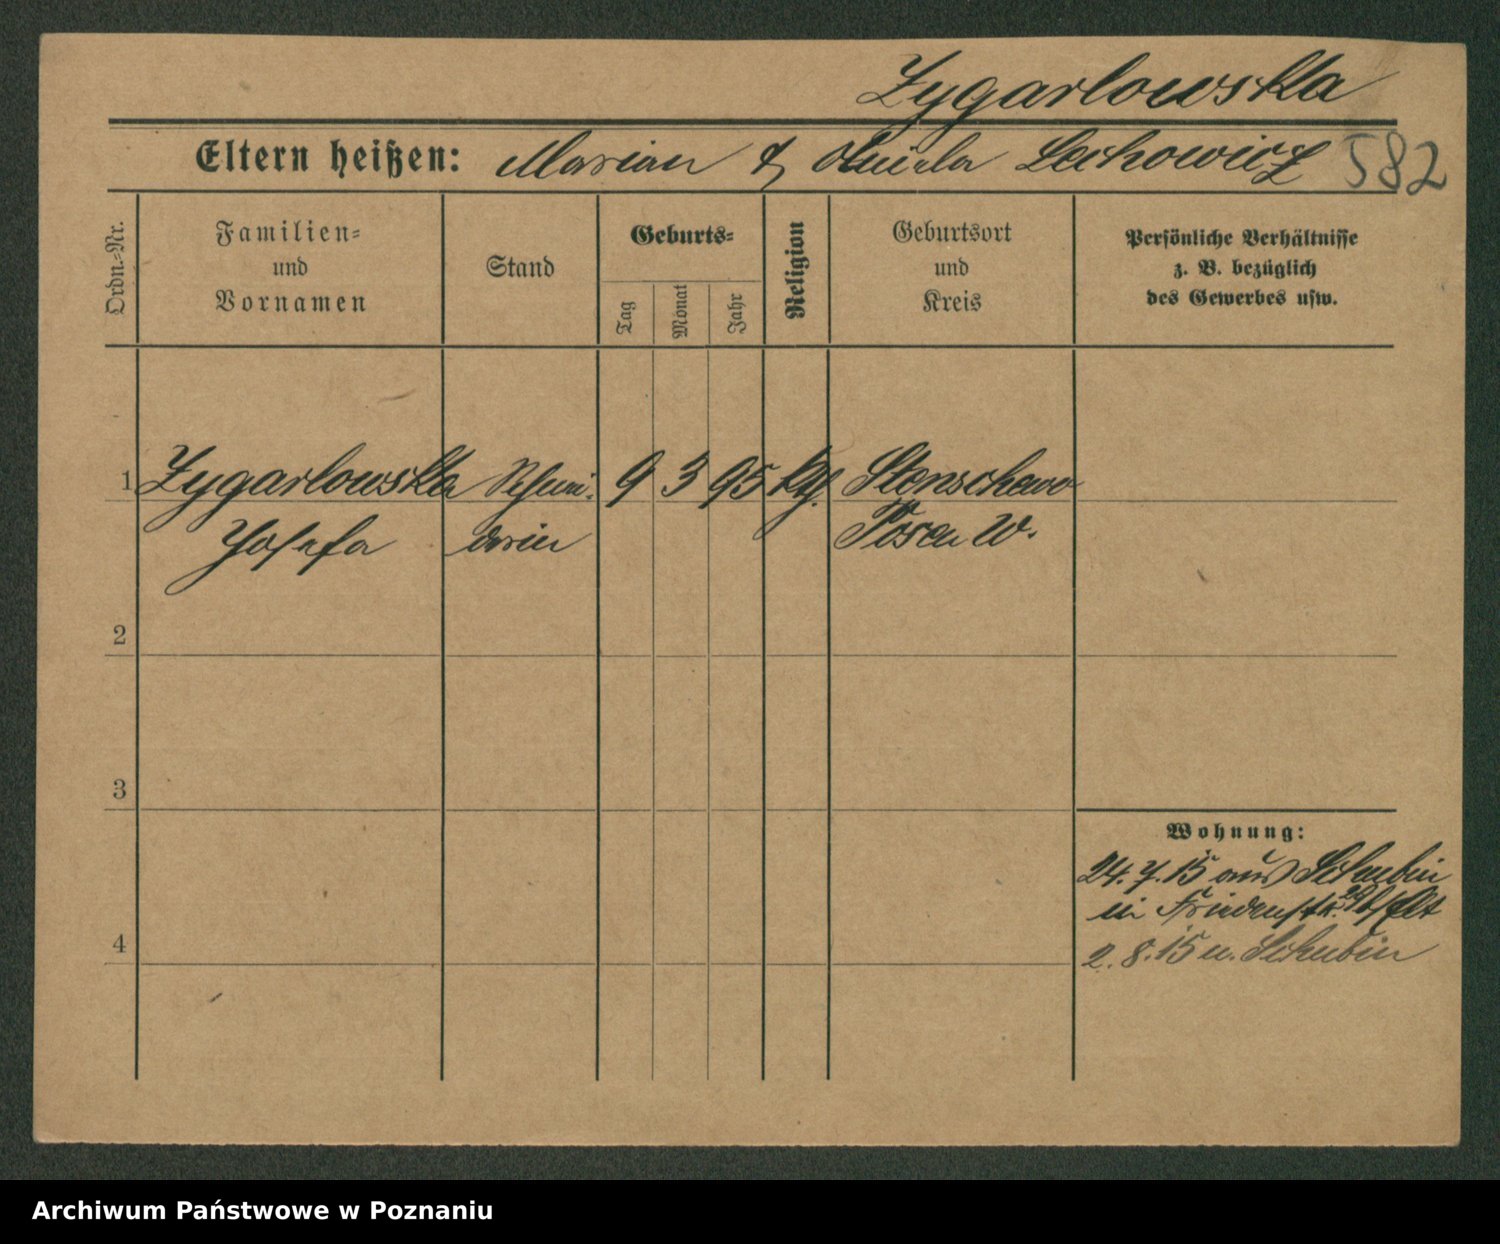 Zygarlowska
Eltern heißen: Marian & Aniela Lechowicz 582
Ordn.-Nr.
Familien-
und
Vornamen
Stand
Geburts-
Tag
Monat
Jahr
Religion
Geburtsort
und
Kreis
Persönliche Verhältnisse
z. B. bezüglich
des Gewerbes usw.
1 Zygarlowska Schnei- 9 3 95 kth. Stenschewo
Josefa derin Posen W.
2
3
4
Wohnung:
24. 7. 15 aus Schubin
in Friedenstr. 29
2. 8. 15 n. Schubin
Archiwum Państwowe w Poznaniu